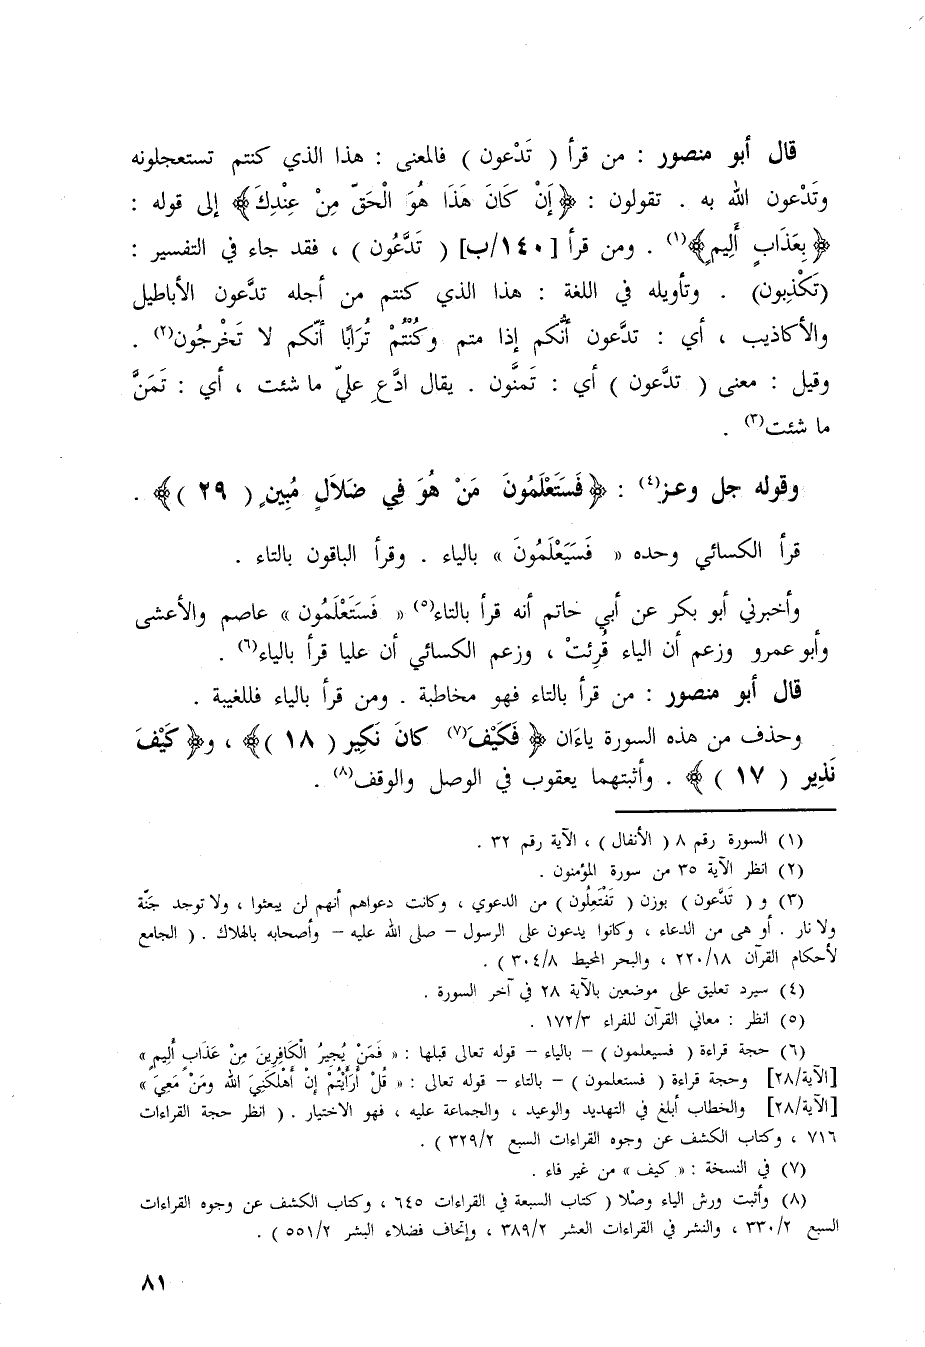 قال أبو منصور : من قرأ ( تَدْعون ) فالمعنى : هذا الذي كنتم تستعجلونه
وتَدْعون الله به . تقولون : ﴿إِنْ كَانَ هَذَا هُوَ الْحَقّ مِنْ عِنْدِكَ﴾ إلى قوله :
﴿بِعَذَابٍ أَلِيمٍ﴾(١) . ومن قرأ [١٤٠/ب] ( تَدَّعُون ) ، فقد جاء في التفسير :
(تَكْذِبون) . وتأويله في اللغة : هذا الذي كنتم من أجله تدَّعون الأباطيل
والأكاذيب ، أي : تدَّعون أنَّكم إذا متم وكُنْتُمْ تُرَابًا أنّكم لا تَخْرجُون(٢) .
وقيل : معنى ( تدَّعون ) أي : تَمنَّون . يقال ادَّعِ عليّ ما شئت ، أي : تَمَنَّ
ما شئت(٣) .
وقوله جل وعز(٤) : ﴿فَسَتَعْلَمُونَ مَنْ هُوَ فِي ضَلَالٍ مُبِينٍ ( ٢٩ )﴾ .
قرأ الكسائي وحده « فَسَيَعْلَمُونَ » بالياء . وقرأ الباقون بالتاء .
وأخبرني أبو بكر عن أبي حاتم أنه قرأ بالتاء(٥) « فَسَتَعْلَمُون » عاصم والأعشى
وأبو عمرو وزعم أن الياء قُرِئتْ ، وزعم الكسائي أن عليا قرأ بالياء(٦) .
قال أبو منصور : من قرأ بالتاء فهو مخاطبة . ومن قرأ بالياء فللغيبة .
وحذف من هذه السورة ياءَان ﴿ فَكَيْفَ(٧) كانَ نَكِير ( ١٨ )﴾ ، و﴿ كَيْفَ
نَذِير ( ١٧ ) ﴾ . وأثبتهما يعقوب في الوصل والوقف(٨) .
(١) السورة رقم ٨ ( الأنفال ) ، الآية رقم ٣٢ .
(٢) انظر الآية ٣٥ من سورة المؤمنون .
(٣) و ( تَدَّعون ) بوزن ( تَفْتَعِلُون ) من الدعوي ، وكانت دعواهم أنهم لن يبعثوا ، ولا توجد جَنّة
ولا نار . أو هى من الدعاء ، وكانوا يدعون على الرسول – صلى الله عليه – وأصحابه بالهلاك . ( الجامع
لأحكام القرآن ٢٢٠/١٨ ، والبحر المحيط ٣٠٤/٨ ) .
(٤) سيرد تعليق على موضعين بالآية ٢٨ في آخر السورة .
(٥) انظر : معاني القرآن للفراء ١٧٢/٣ .
(٦) حجة قراءة ( فسيعلمون ) – بالياء – قوله تعالى قبلها : « فَمَنْ يُجِيرُ الْكَافِرِينَ مِنْ عَذَابٍ أَلِيمٍ »
[الآية/٢٨] وحجة قراءة ( فستعلمون ) – بالتاء – قوله تعالى : « قُلْ أَرَأَيْتُمْ إِنْ أَهْلَكَنِيَ الله ومَنْ مَعِيَ »
[الآية/٢٨] والخطاب أبلغ في التهديد والوعيد ، والجماعة عليه ، فهو الاختيار . ( انظر حجة القراءات
٧١٦ ، وكتاب الكشف عن وجوه القراءات السبع ٣٢٩/٢ ) .
(٧) في النسخة : « كيف » من غير فاء .
(٨) وأثبت ورش الياء وصْلا ( كتاب السبعة في القراءات ٦٤٥ ، وكتاب الكشف عن وجوه القراءات
السبع ٣٣٠/٢ ، والنشر في القراءات العشر ٣٨٩/٢ ، وإتحاف فضلاء البشر ٥٥١/٢ ) .
٨١